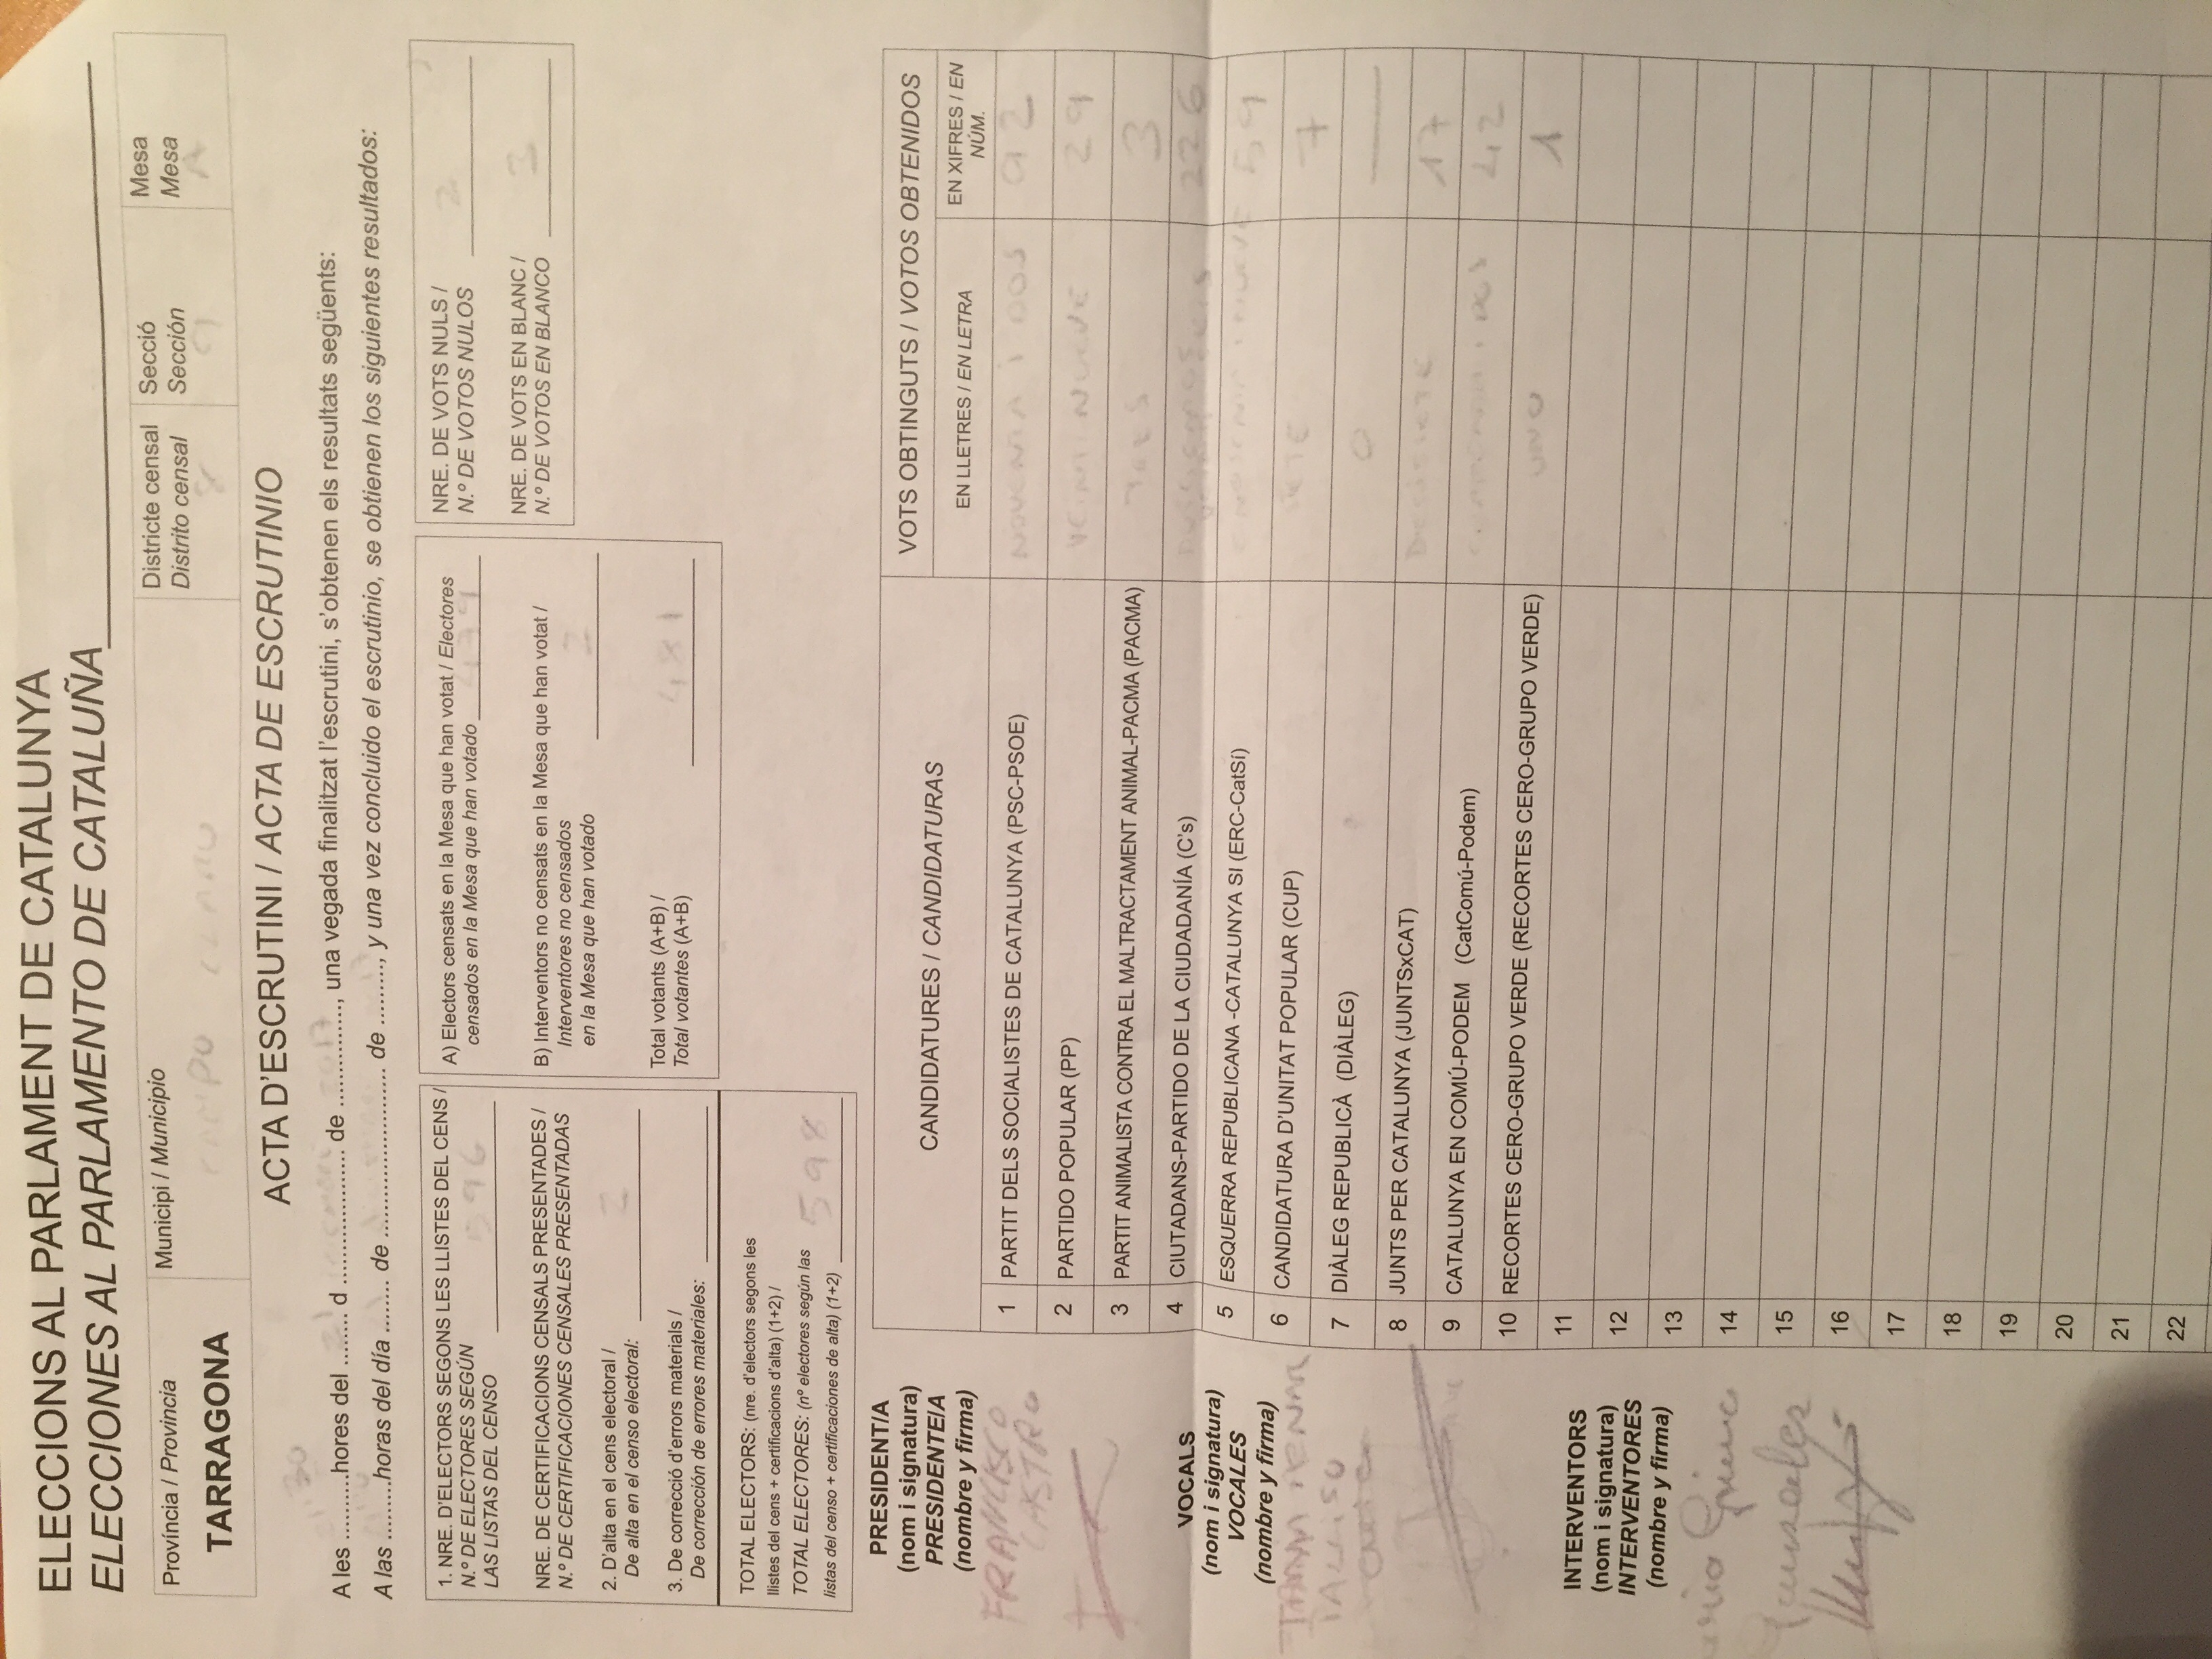 ELECCIONS AL PARLAMENT DE CATALUNYA
ELECCIONES AL PARLAMENTO DE CATALUÑA
Província / Provincia
TARRAGONA
Municipi / Municipio
CAMPO CLARO
Districte censal
Distrito censal
8
Secció
Sección
9
Mesa
Mesa
A
ACTA D'ESCRUTINI / ACTA DE ESCRUTINIO
A les ..........hores del ........ d .................... de 2017, una vegada finalitzat l'escrutini, s'obtenen els resultats següents:
A las .........horas del día ........ de ......................... de ........., y una vez concluido el escrutinio, se obtienen los siguientes resultados:
1. NRE. D'ELECTORS SEGONS LES LLISTES DEL CENS /
N.º DE ELECTORES SEGÚN
LAS LISTAS DEL CENSO 596
NRE. DE CERTIFICACIONS CENSALS PRESENTADES /
N.º DE CERTIFICACIONES CENSALES PRESENTADAS
2. D'alta en el cens electoral /
De alta en el censo electoral: 2
3. De correcció d'errors materials /
De corrección de errores materiales:
TOTAL ELECTORS: (nre. d'electors segons les
llistes del cens + certificacions d'alta) (1+2) /
TOTAL ELECTORES: (nº electores según las
listas del censo + certificaciones de alta) (1+2) 598
A) Electors censats en la Mesa que han votat / Electores
censados en la Mesa que han votado 479
B) Interventors no censats en la Mesa que han votat /
Interventores no censados
en la Mesa que han votado 2
Total votants (A+B) /
Total votantes (A+B) 481
NRE. DE VOTS NULS /
N.º DE VOTOS NULOS 2
NRE. DE VOTS EN BLANC /
N.º DE VOTOS EN BLANCO 3
PRESIDENT/A
(nom i signatura)
PRESIDENTE/A
(nombre y firma)
FRANCISCO
CASTRO
VOCALS
(nom i signatura)
VOCALES
(nombre y firma)
INTERVENTORS
(nom i signatura)
INTERVENTORES
(nombre y firma)
CANDIDATURES / CANDIDATURAS
VOTS OBTINGUTS / VOTOS OBTENIDOS
EN LLETRES / EN LETRA
EN XIFRES / EN
NÚM.
1 PARTIT DELS SOCIALISTES DE CATALUNYA (PSC-PSOE) NOVENTA I DOS 92
2 PARTIDO POPULAR (PP) VEINTINUEVE 29
3 PARTIT ANIMALISTA CONTRA EL MALTRACTAMENT ANIMAL-PACMA (PACMA) TRES 3
4 CIUTADANS-PARTIDO DE LA CIUDADANÍA (C's) 226
5 ESQUERRA REPUBLICANA -CATALUNYA SI (ERC-CatSí) 59
6 CANDIDATURA D'UNITAT POPULAR (CUP) SIETE 7
7 DIÀLEG REPUBLICÀ (DIÀLEG) 0 —
8 JUNTS PER CATALUNYA (JUNTSxCAT) DECISIETE 17
9 CATALUNYA EN COMÚ-PODEM (CatComú-Podem) 42
10 RECORTES CERO-GRUPO VERDE (RECORTES CERO-GRUPO VERDE) UNO 1
11
12
13
14
15
16
17
18
19
20
21
22